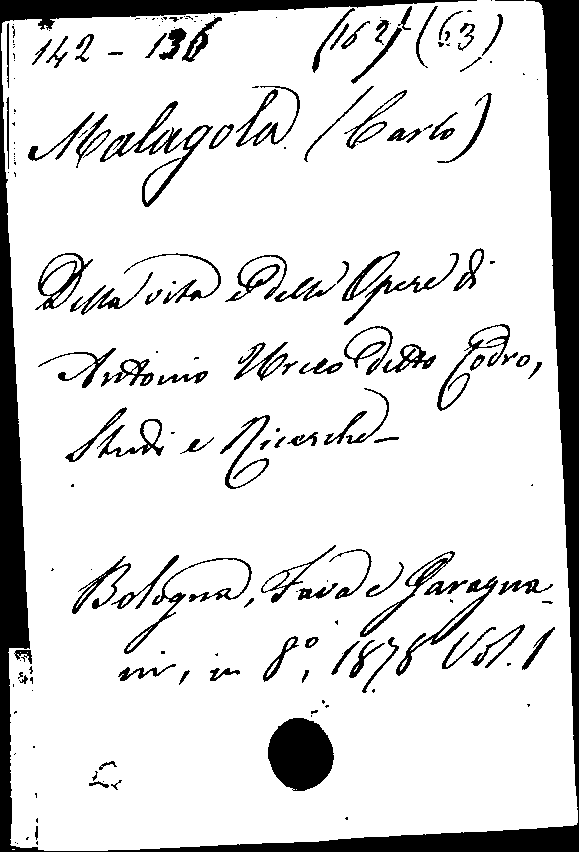 142 - 136 (162) (63)
Malagola (Carlo)
Della vita e delle Opere di
Antonio Urceo detto Codro,
Studi e Ricerche_
Bologna, Fava e Garagna-
ni, in 8º, 1878 Vol. 1